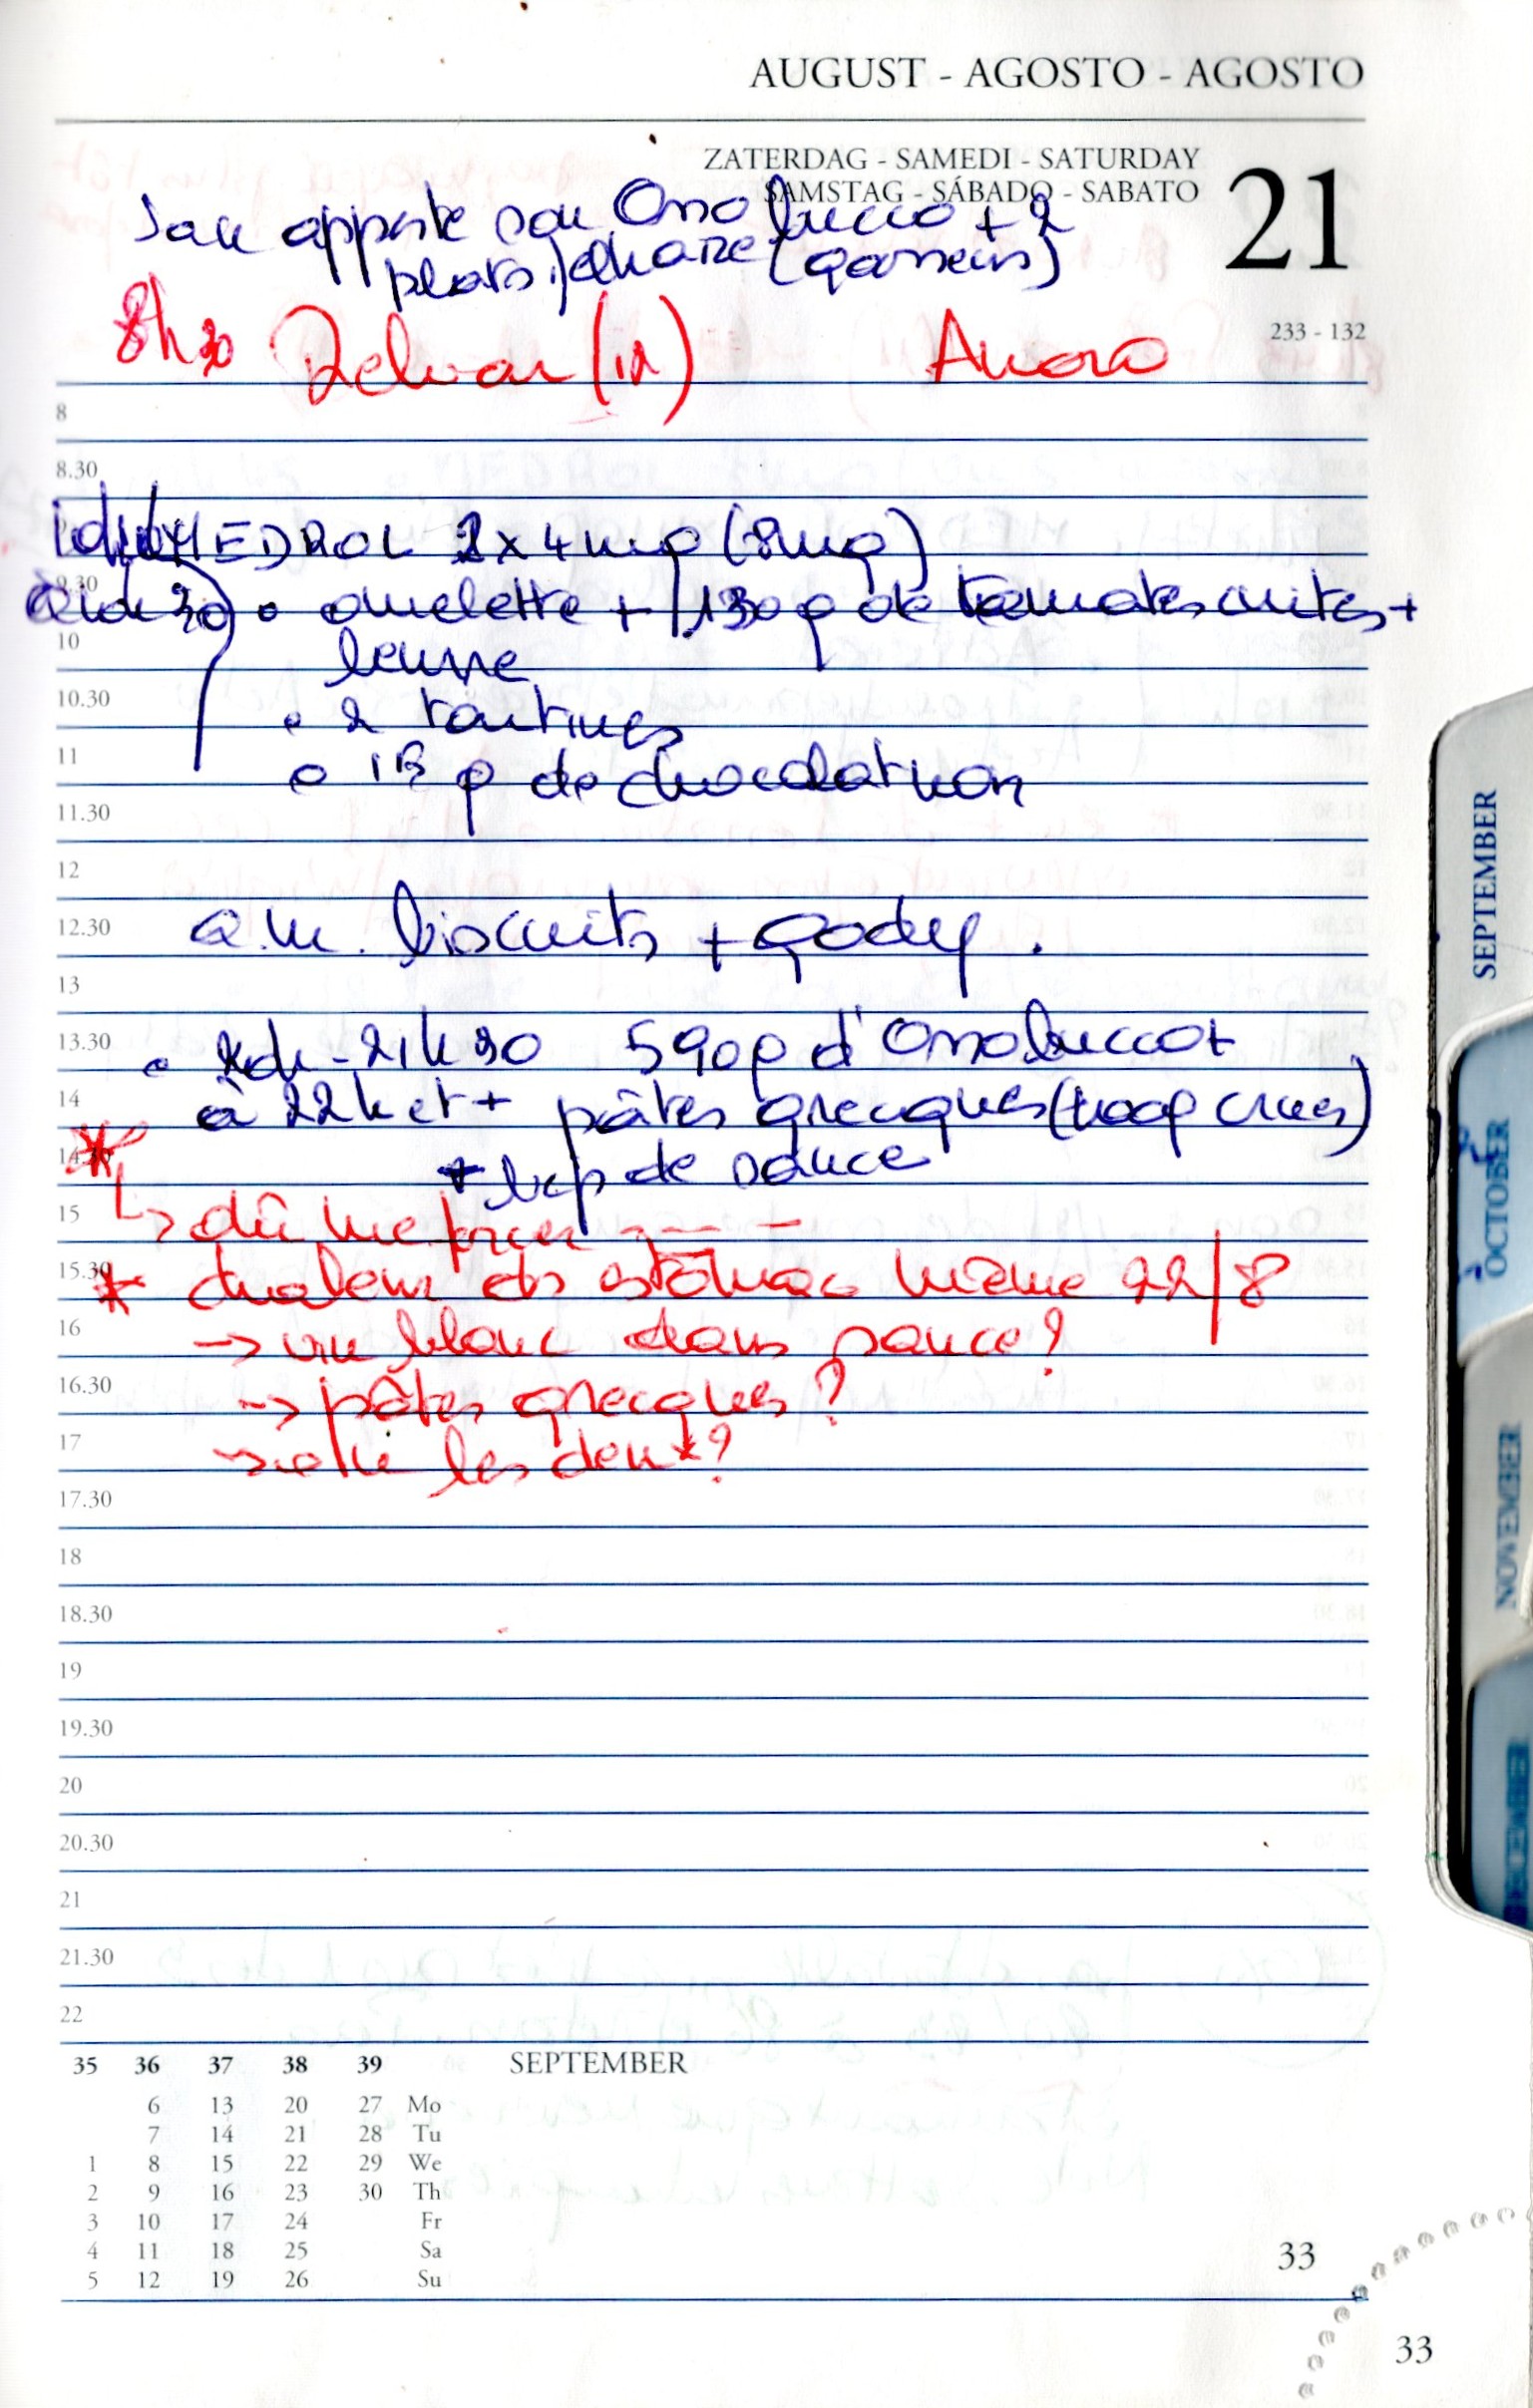 AUGUST - AGOSTO - AGOSTO
ZATERDAG - SAMEDI - SATURDAY
SAMSTAG - SÁBADO - SABATO
21
apporte son Osso bucco + 2
plats
233 - 132
8h30 Delvar
8
8.30
MEDROL 2 x 4 mg (8mg)
9.30
30 • omelette + 130 g de tomates cuites +
10
beurre
10.30
• 2 tartines
11
• g de chocolat noir
11.30
12
12.30 a.m. biscuits + gody.
13
13.30 • 20h - 21h30 590g d'Ossobucco +
14 à 22h et + pâtes grecques ( crues)
14.30 * + bcp de sauce
15 ↳ dû me forcer
15.30 * chaleur ds estomac même 22/8
16 → vin blanc dans sauce?
16.30 → pâtes grecques?
17 → les deux?
17.30
18
18.30
19
19.30
20
20.30
21
21.30
22
35 36 37 38 39 SEPTEMBER
6 13 20 27 Mo
7 14 21 28 Tu
1 8 15 22 29 We
2 9 16 23 30 Th
3 10 17 24 Fr
4 11 18 25 Sa
5 12 19 26 Su
33
33
SEPTEMBER
OCTOBER
NOVEMBER
DECEMBER